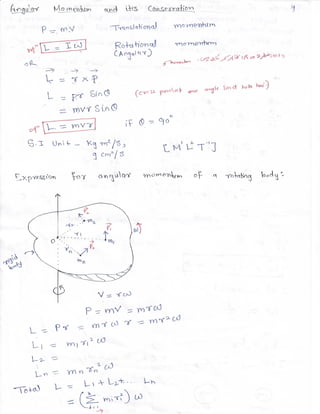 Angular Momentum and its Conservation 9
P = mv Translational momentum
L = Iω Rotational momentum
OR (Angular)
L⃗ = r⃗ × p⃗
L = pr Sinθ (cross product
= mvr Sinθ
L = mvr if θ = 90°
S.I Unit - Kg m²/s,
g cm²/s [M¹L²T⁻¹]
Expression for angular momentum of a rotating body:
rigid body
O
r₁
m₁
P₁
r₂
m₂
P₂
rₙ
mₙ
Pₙ
ω
V = rω
P = mV = mrω
L = Pr = mrω r = mr²ω
L₁ = m₁r₁²ω
L₂ =
Lₙ = mₙrₙ²ω
Total L = L₁ + L₂ + ... Lₙ
= (Σ mᵢrᵢ²) ω